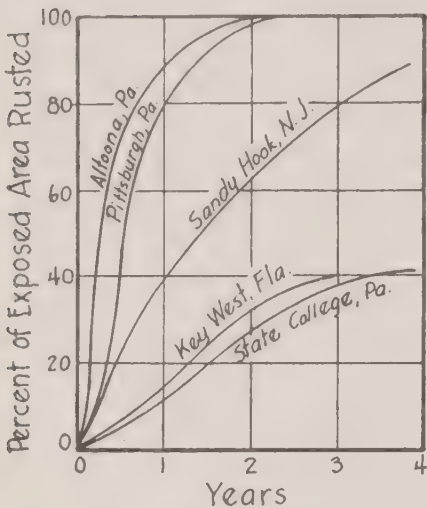 Percent of Exposed Area Rusted
100
80
60
40
20
0
Altoona, Pa.
Pittsburgh, Pa
Sandy Hook, N.J.
Key West, Fla.
State College, Pa.
0 1 2 3 4
Years